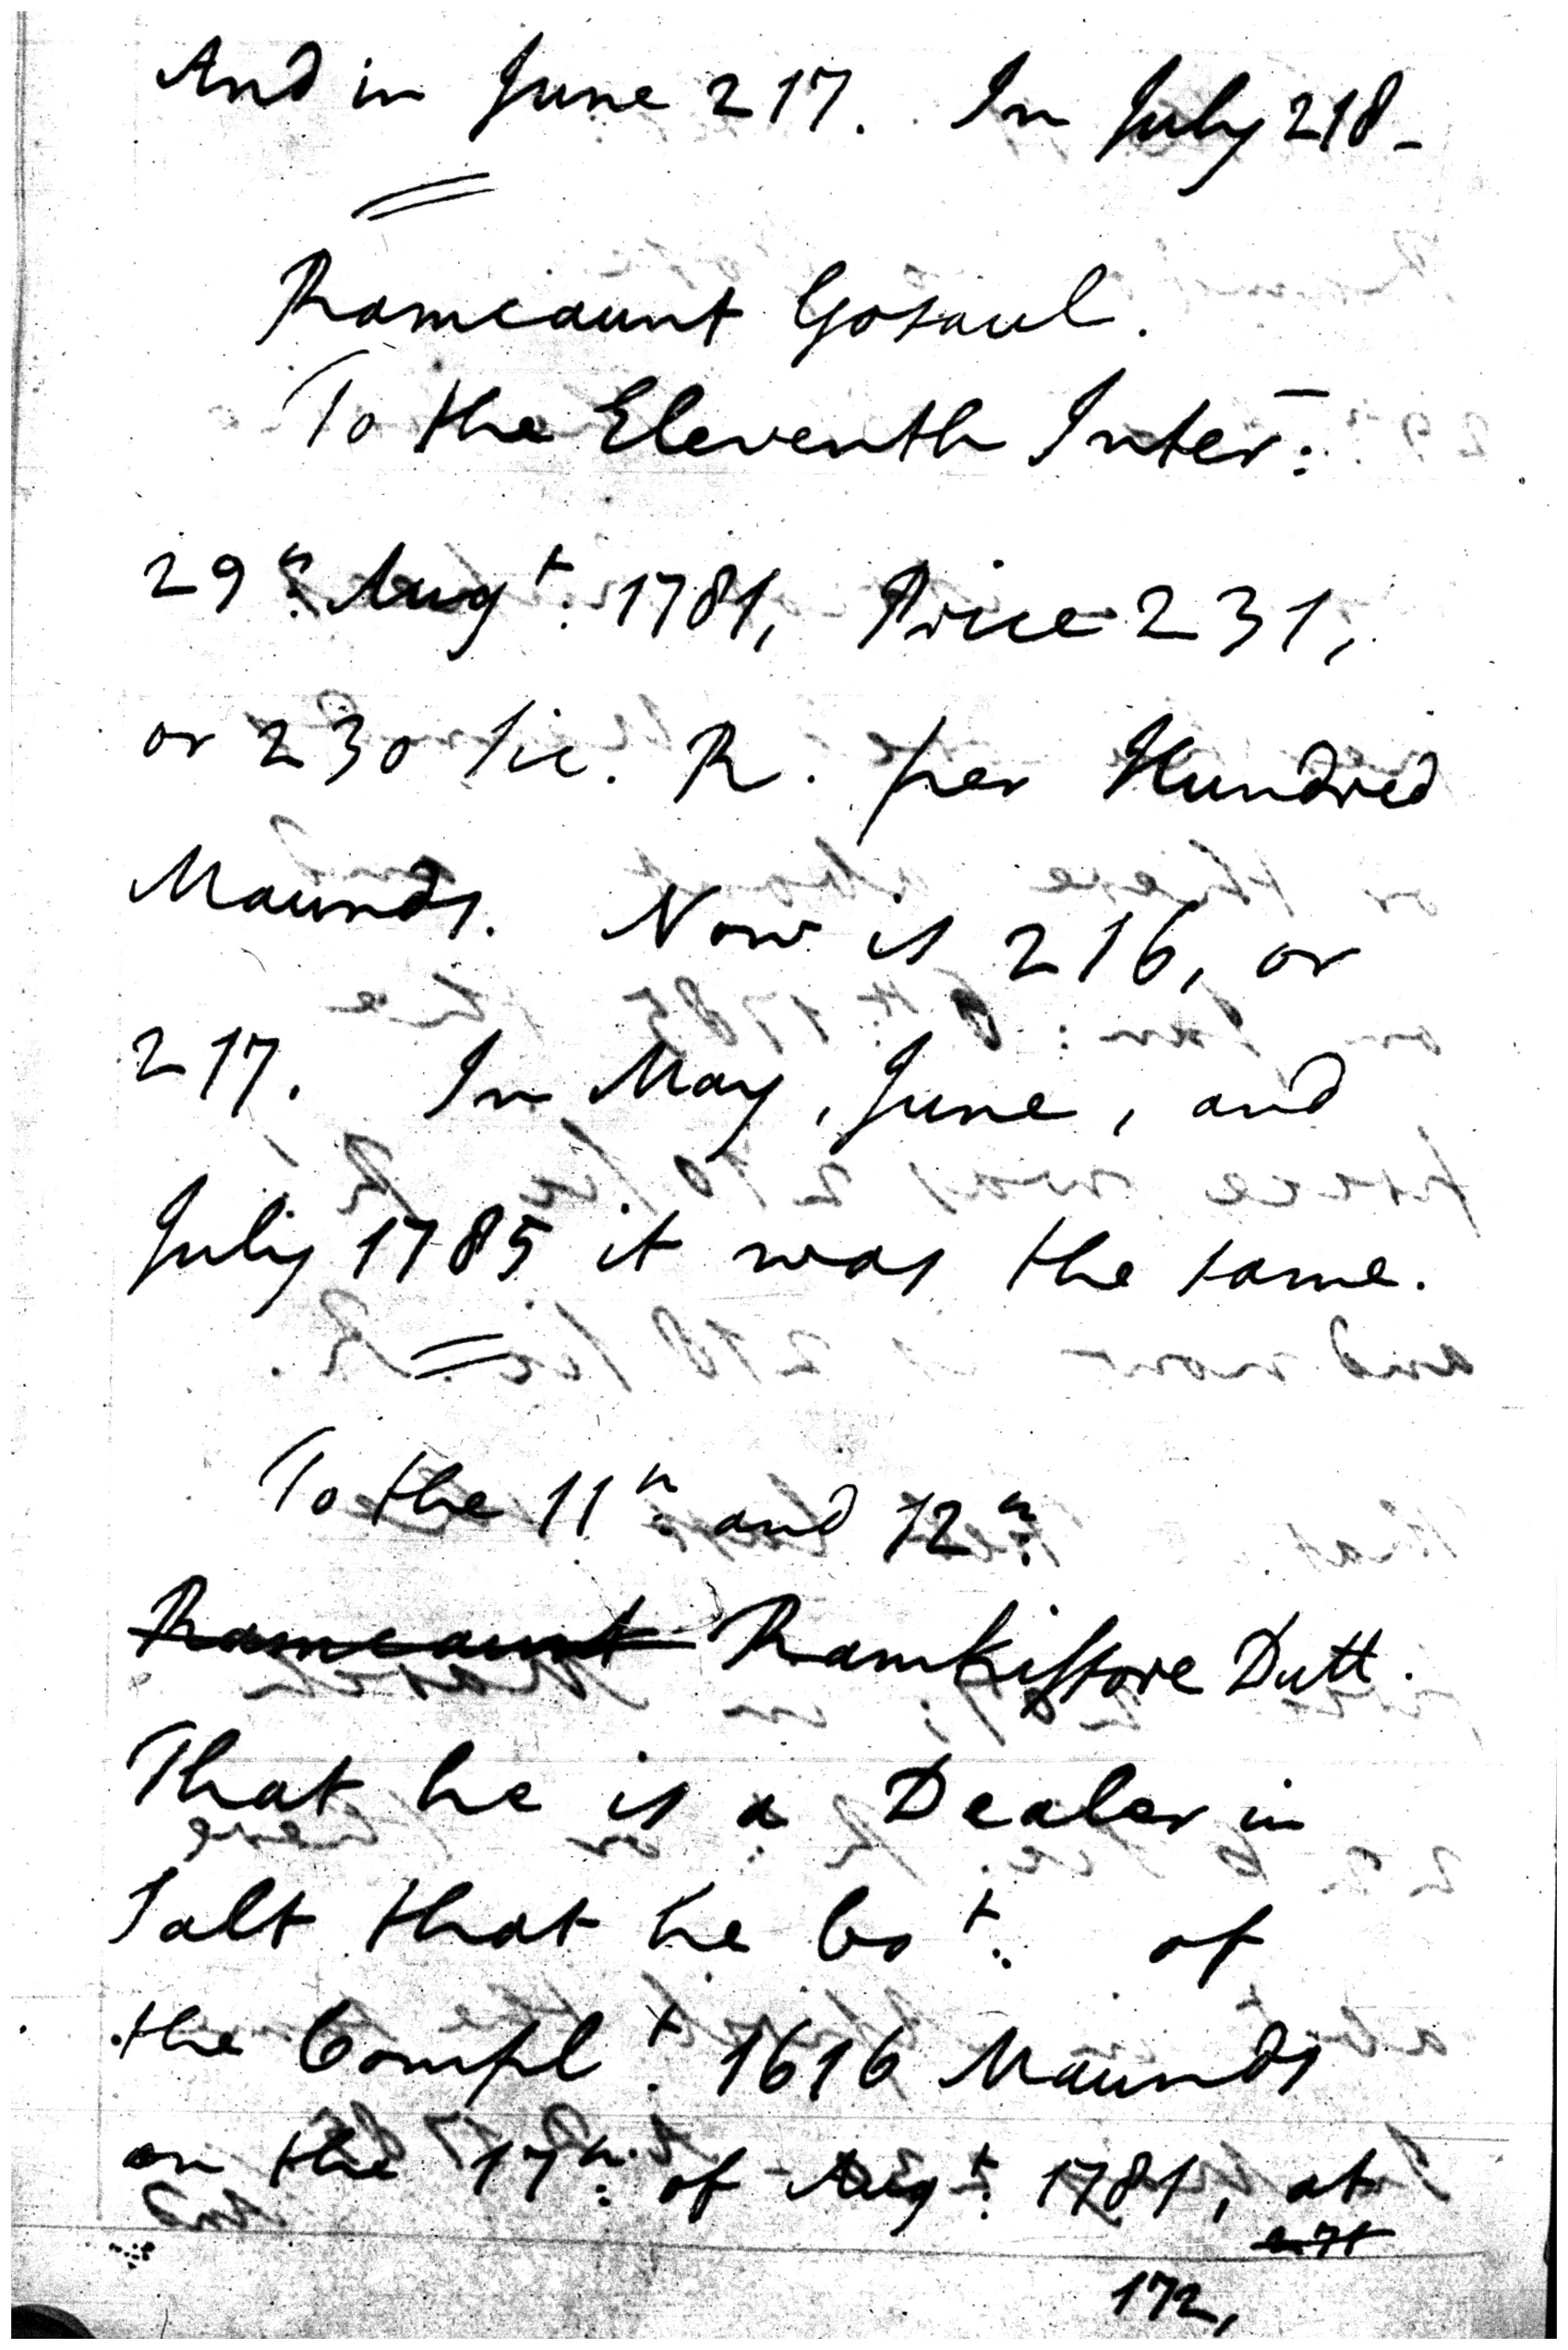 And in June 217. In July 218-
Ramcaunt Gosaul.
To the Eleventh Inter:
29th. Augt. 1781, Price 231,
or 230 Sic. R. per Hundred
Maunds. Now is 216, or
217. In May, June, and
July 1785 it was the same.
To the 11th. and 12th.
Ramcaunt Ramkissore Dutt.
That he is a Dealer in
Salt that he bot. of
the Complt. 1616 Maunds
on the 17th. of Augt. 1781, at
172,